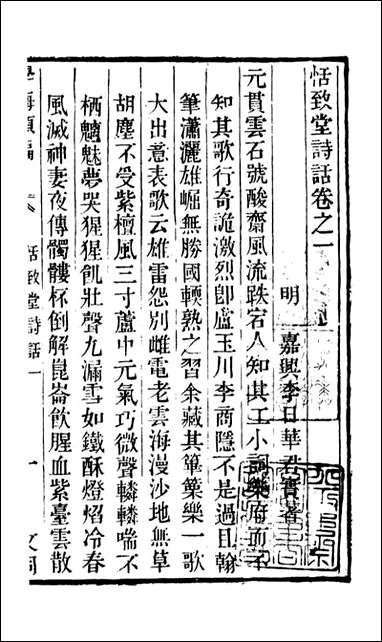 恬致堂詩話卷之一
明 嘉興李日華君實著
元貫雲石號酸齋風流跌宕人知其工小詞樂府而不
知其歌行奇詭激烈卽盧玉川李商隱不是過且翰
筆瀟灑雄崛無勝國輭熟之習余藏其篳篥樂一歌
大出意表歌云雄雷怨別雌電老雲海漫沙地無草
胡塵不受紫檀風三寸蘆中元氣巧微聲轔轔喘不
栖魑魅夢哭猩猩飢壯聲九漏雪如鐵酥燈焰冷春
風滅神妻夜傳髑髏杯倒解崑崙飮腥血紫臺雲散
學海類編 恬致堂詩話一 一